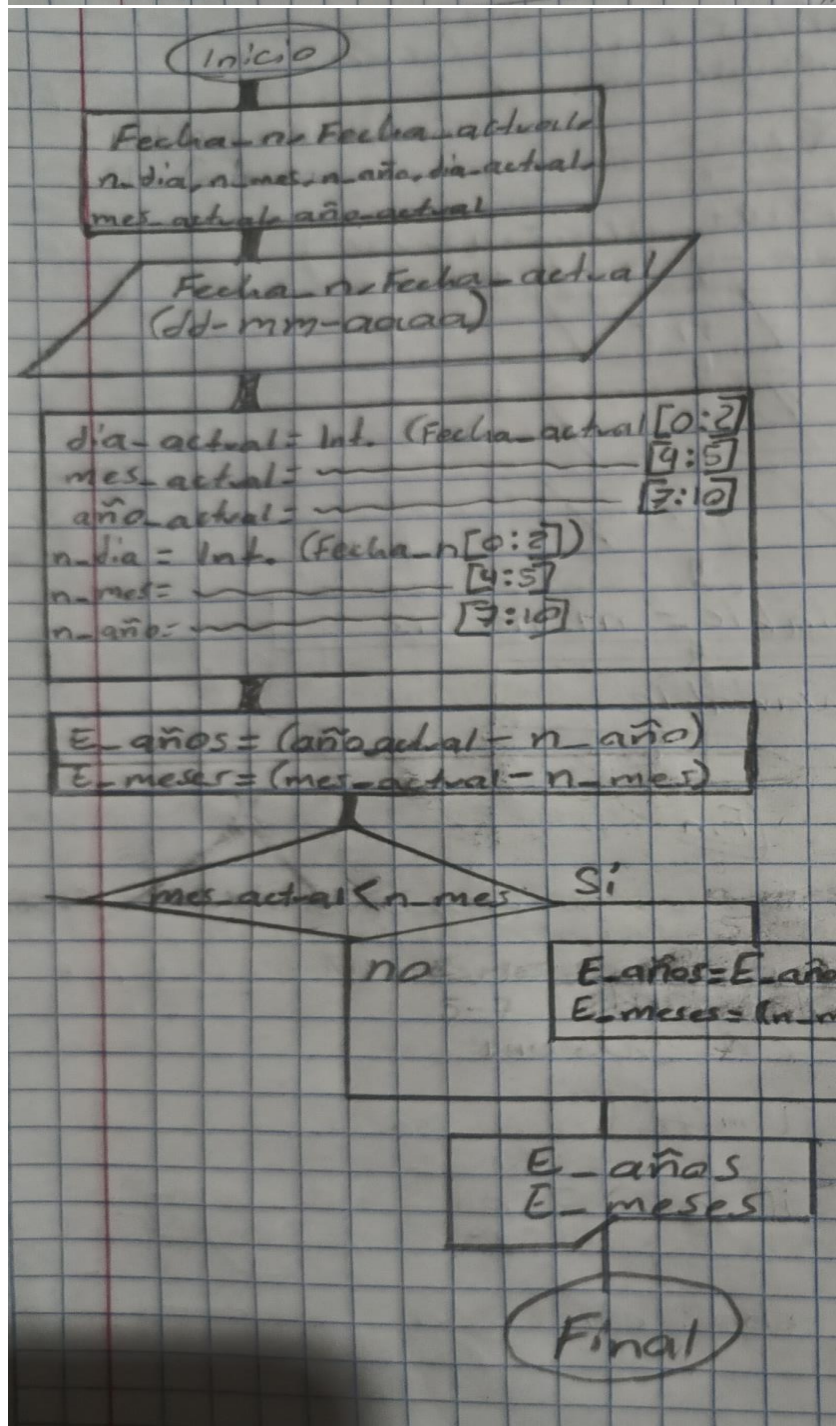 Inicio
Fecha_n, Fecha_actual,
n_dia, n_mes, n_año, dia_actual,
mes_actual, año_actual
Fecha_n, Fecha_actual
(dd-mm-aaaa)
dia_actual= Int. (Fecha_actual[0:2]
mes_actual= [4:5]
año_actual= [7:10]
n_dia = Int. (Fecha_n[0:2])
n_mes= [4:5]
n_año= [7:10]
E_años= (año_actual- n_año)
E_meses= (mes_actual- n_mes)
mes_actual<n_mes
Si
no
E_años=E_año
E_meses=(n_m
E_años
E_meses
Final